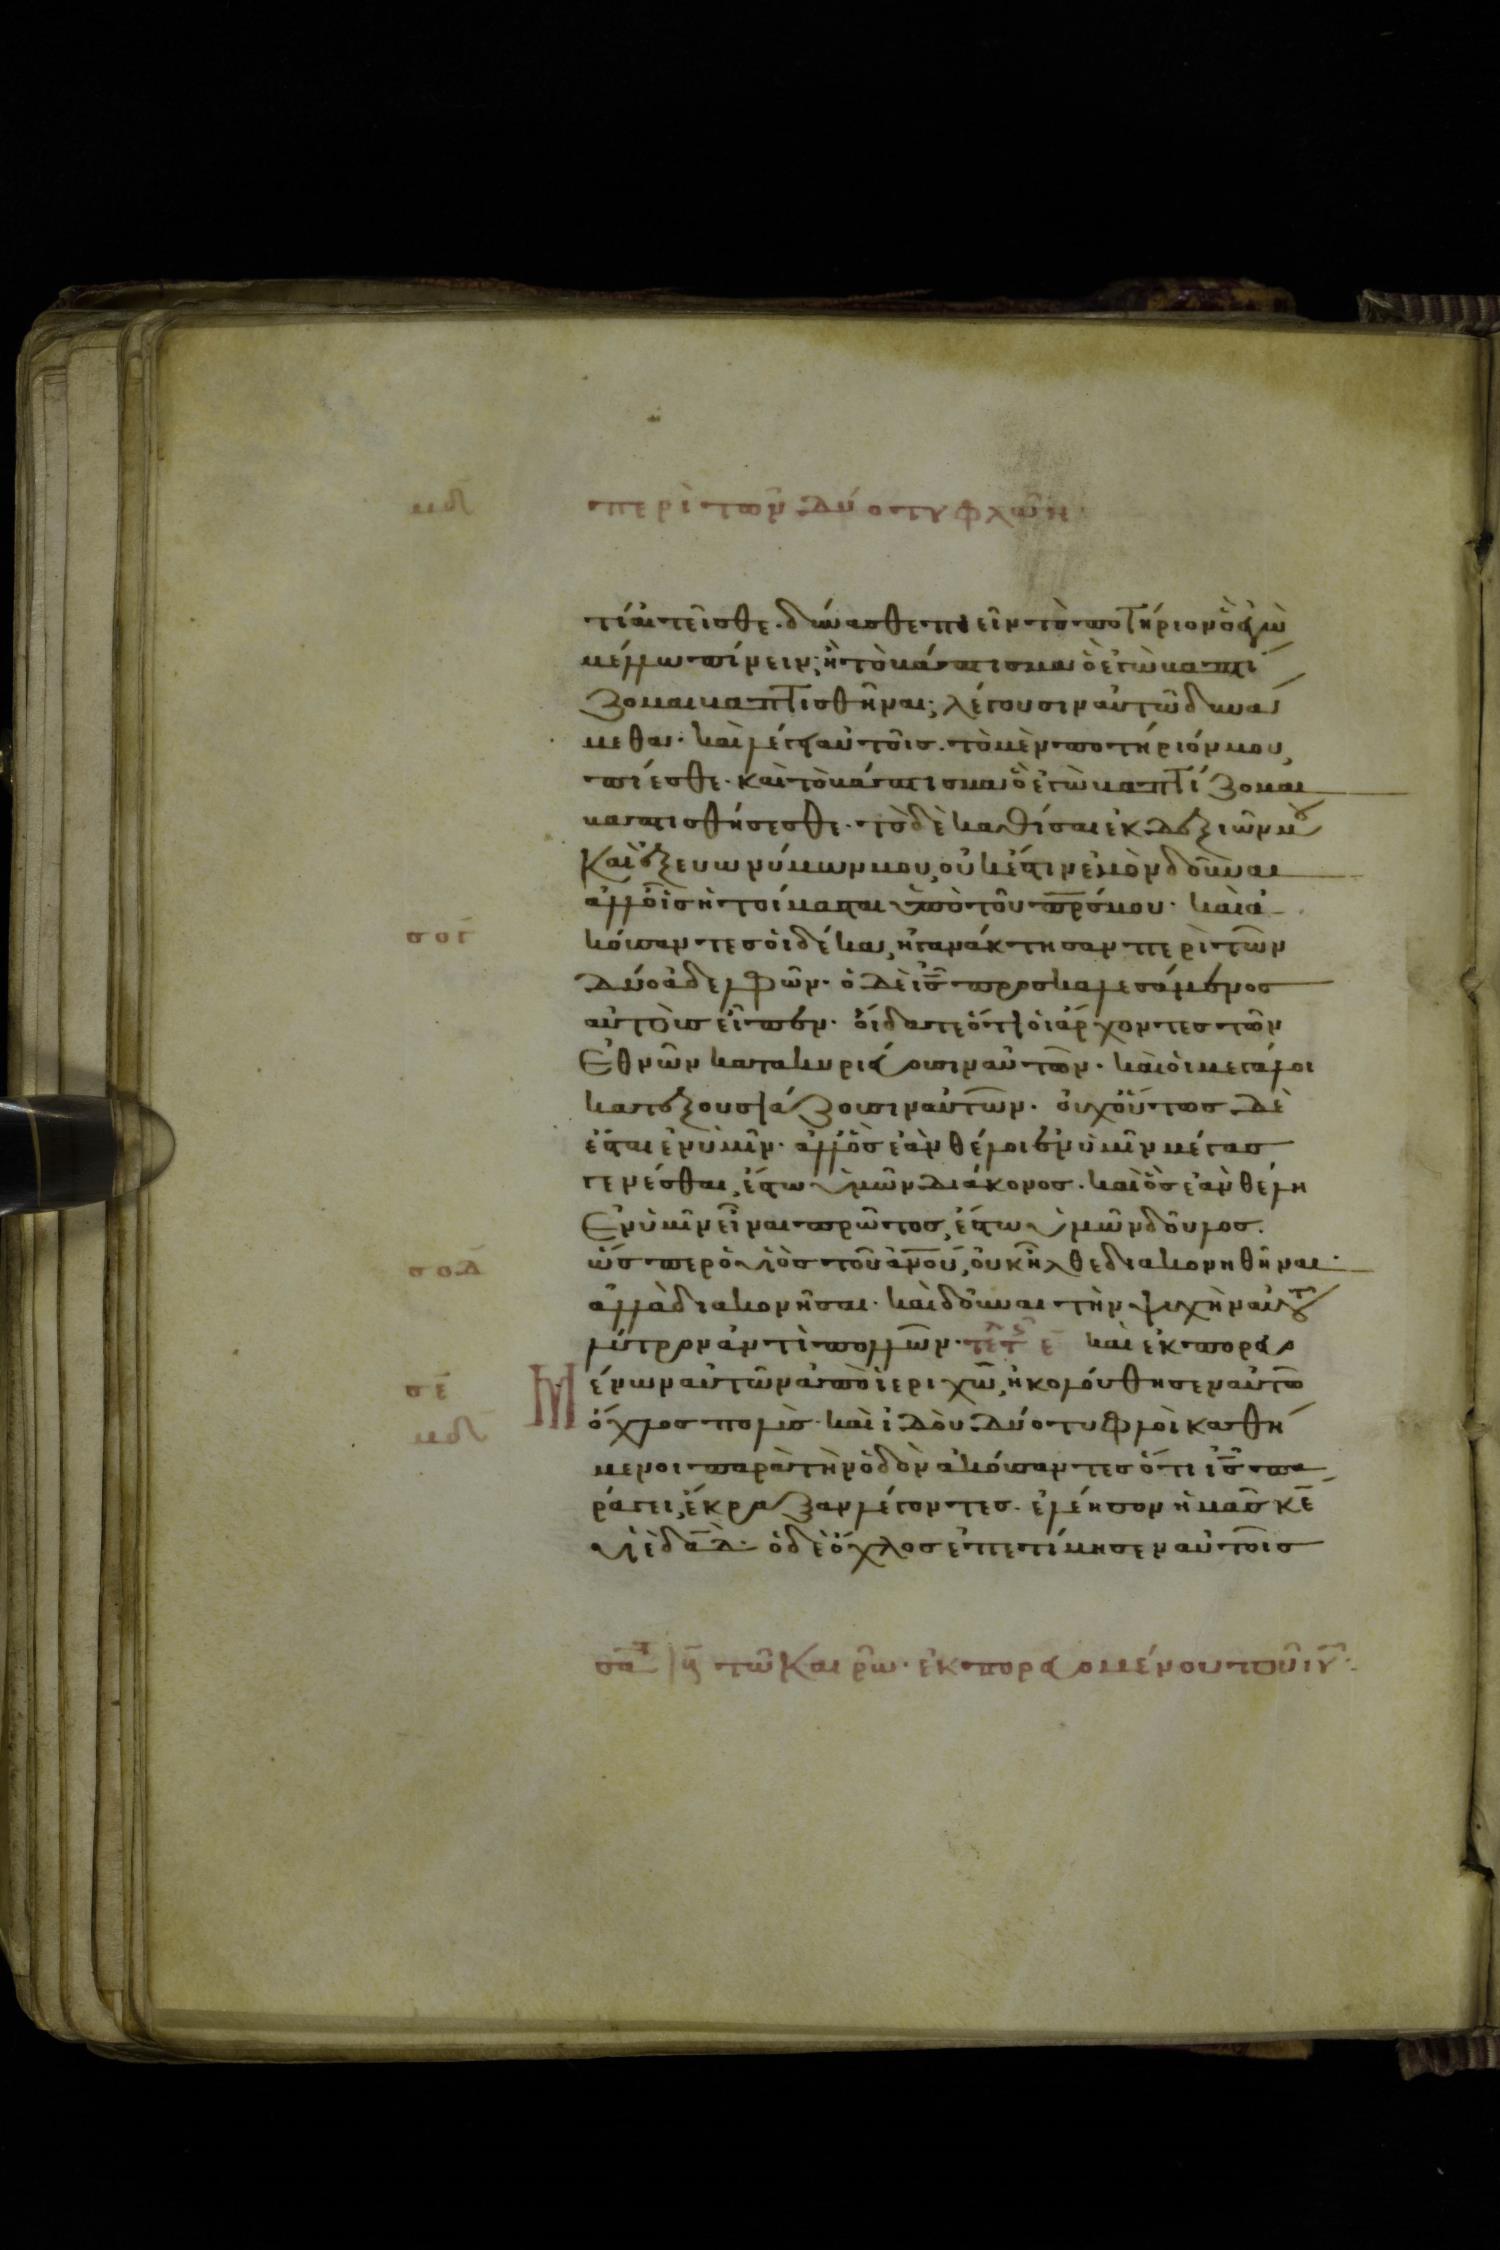 μδ περὶ τῶν δύο τυφλῶν
τί αἰτεῖσθε. δύνασθε πιεῖν τὸ ποτήριον ὃ ἐγὼ
μέλλω πίνειν; ἢ τὸ βάπτισμα ὃ ἐγὼ βαπτί
ζομαι βαπτισθῆναι; λέγουσιν αὐτῶ δυνά
μεθα. καὶ λέγει αὐτοῖς. τὸ μὲν ποτήριόν μου,
πίεσθε. καὶ τὸ βάπτισμα ὃ ἐγὼ βαπτίζομαι
βαπτισθήσεσθε. τὸ δὲ καθίσαι ἐκ δεξιῶν μου
καὶ ἐξ ευωνύμων μου, οὐκ ἔστιν ἐμὸν δοῦναι
ἀλλ' οἷς ἡτοίμασται ὑπὸ τοῦ πρς μου. καὶ ἀ
κούσαντες οἱ δέκα, ἠγανάκτησαν περὶ τῶν
δύο ἀδελφῶν. ὁ δὲ ις προσκαλεσάμενος
αὐτοὺς εἶπεν. οἴδατε ὅτι οἱ ἄρχοντες τῶν
ἐθνῶν κατακυριεύουσιν αὐτῶν. καὶ οἱ μεγάλοι
κατεξουσιάζουσιν αὐτῶν. οὐχ οὕτως δὲ
ἔσται ἐν ὑμῖν. ἀλλ' ὃς ἐὰν θέλοι ἐν ὑμῖν μέγας
γενέσθαι, ἔστω ὑμῶν διάκονος. καὶ ὃς ἐὰν θέλη
ἐν ὑμῖν εἶναι πρῶτος, ἔστω ὑμῶν δοῦλος.
ὥσπερ ὁ υἱὸς τοῦ ἀνου, οὐκ ἦλθε διακονηθῆναι.
ἀλλὰ διακονῆσαι. καὶ δοῦναι τὴν ψυχὴν αὐτοῦ
λύτρον ἀντὶ πολλῶν. καὶ ἐκπορευ
ένων αὐτῶν ἀπὸ ἱεριχῶ, ἠκολούθησεν αὐτῶ
Μ
ὄχλος πολὺς. καὶ ἰδοὺ δύο τυφλοὶ καθή
μενοι παρὰ τὴν ὁδὸν ἀκούσαντες ὅτι ις πα
ράγει, ἔκραξαν λέγοντες. ἐλέησον ἡμᾶς κε
υἱὲ δαδ. ὁ δὲ ὄχλος ἐπετίμησεν αὐτοῖς
σγ
σδ
σε
μδ
τῶ καιρῶ. ἐκπορευομένου τοῦ ιυ.